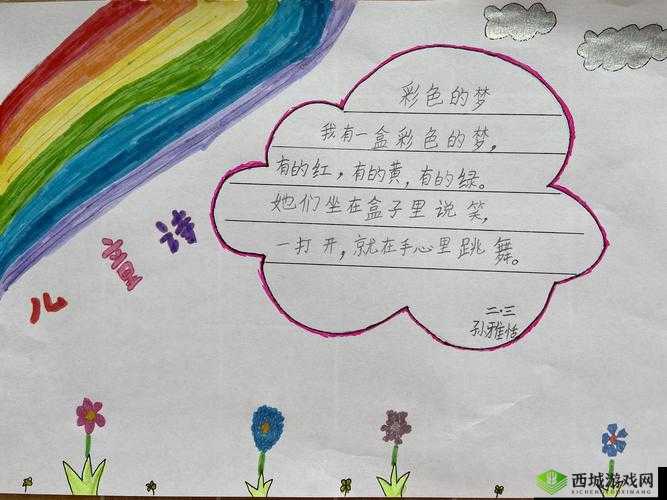 彩色的梦
我有一盒彩色的梦，
有的红，有的黄，有的绿。
她们坐在盒子里说笑，
一打开，就在手心里跳舞。
二.三
孙雅恬
儿童诗
西城游戏网
XICHENGYOUXIWANG